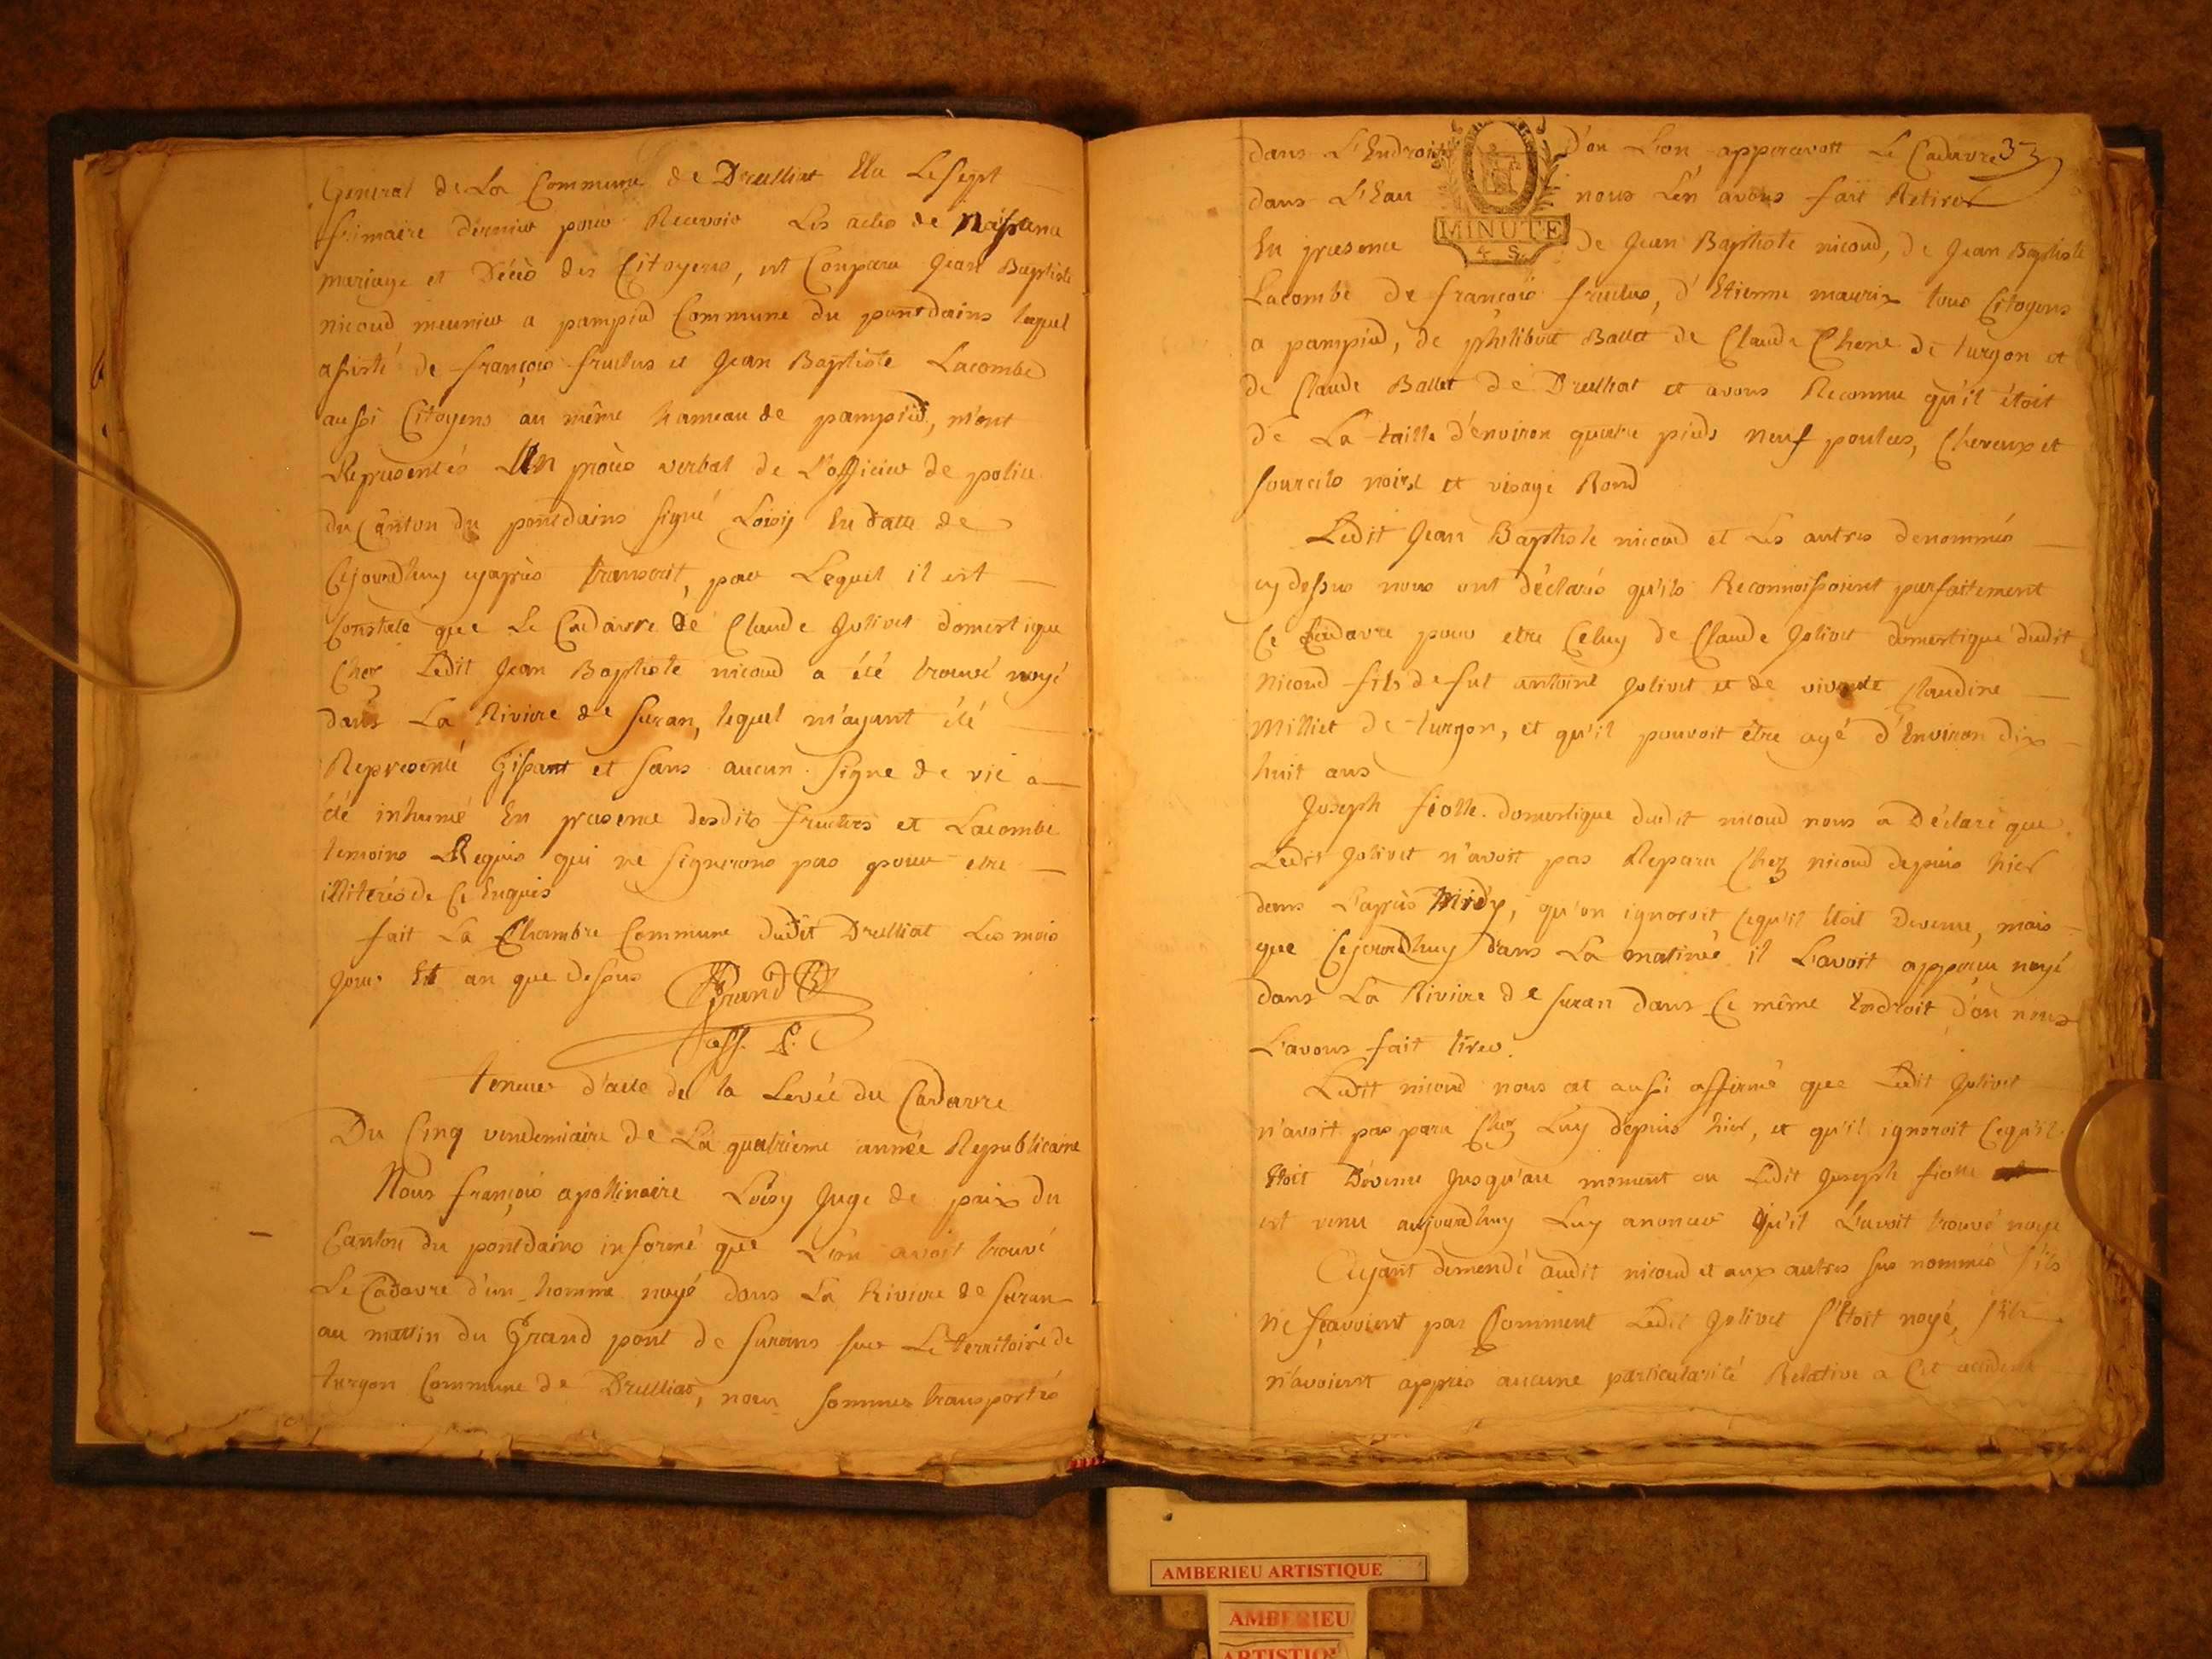 General de La Commune de Druilliat Elu Le Sept
frimaire dernier pour Recevoir Les actes de Naissance
mariage et Décès des Citoyens, est Comparu Jean Baptiste
nicoud meunier a pampied Commune du pontdains lequel
assisté de françois fructus et Jean Baptiste Lacombe
aussi Citoyens au même hameau de pampied, m'ont
Représentés Un procès verbal de L'officier de police
du Canton du pontdains signé Loisy En datte de
Cejourdhuy cyaprès transcrit, par Lequel il est
Constate que Le Cadavre de Claude Jolivet domestique
Chez Ledit Jean Baptiste nicoud a été trouvé noyé
dans La Riviere de Suran, lequel m'ayant été
Representé Gisant et sans aucun signe de vie a
été inhumé En presence desdits fructus et Lacombe
temoins Requis qui ne signerons pas pour etre
illiterés de Ce Enquis
fait La Chambre Commune dudit Druilliat Les mois
jour Et an que dessus
Grand
off. P.
teneur d'acte de la Levée du Cadavre
Du Cinq vendemiaire de La quatrieme année Republicaine
Nous françois apollinaire Loisy Juge de paix du
Canton du pontdains informé que L'on avoit trouvé
Le Cadavre d'un homme noyé dans La Riviere de Suran
au matin du Grand pont de Surans sur Le territoire de
turgon Commune de Druilliat, nous sommes transportés
dans L'Endroit d'ou L'on appercevoit Le Cadavre 33
dans L'Eau nous L'en avons fait Retirer
MINUTE
4 S.
En presence de Jean Baptiste nicoud, de Jean Baptiste
Lacombe de françois fructus, d'Etienne maurix tous Citoyens
a pampied, de philibert Ballet de Claude Chene de turgon et
de Claude Ballet de Druilliat et avons Reconnu qu'il étoit
de La taille d'environ quatre pieds neuf pouluces, Cheveux et
sourcils noirs et visage Rond
Ledit Jean Baptiste nicoud et Les autres denommés
cy dessus nous ont déclarés qu'ils Reconnoissoient parfaitement
Ce Cadavre pour etre Celuy de Claude Jolivet domestique dudit
Nicoud fils de fut antoine Jolivet et de vivante Claudine
Milliet de turgon, et qu'il pouvoit être agé d'Environ dix
huit ans
Joseph fiolle domestique dudit nicoud nous a Déclaré que
Ledit Jolivet n'avoit pas Reparu Chez nicoud depuis hier
dans L'après Midy, qu'on ignoroit Cequ'il Etoit Devenu, mais
que Cejourdhuy dans La matinée il L'avoit apperçu noyé
dans La Riviere de Suran dans Ce même Endroit d'ou nous
L'avons fait tirer.
Ledit nicoud nous at aussi affirmé que Ledit Jolivet
n'avoit pas paru Chez Luy depuis hier, et qu'il ignoroit Cequ'il
Etoit Devenu Jusqu'au moment ou Ledit Joseph fiolle
est venu aujourdhuy Luy anoncer qu'il L'avoit trouvé noyé
Ayant demendé audit nicoud et aux autres sus nommés s'ils
ne sçavoient pas Comment Ledit Jolivet s'Etoit noyé, s'ils
n'avoient appris aucune particularité Relative a Cet accident
AMBERIEU ARTISTIQUE
AMBERIEU
ARTISTIQUE